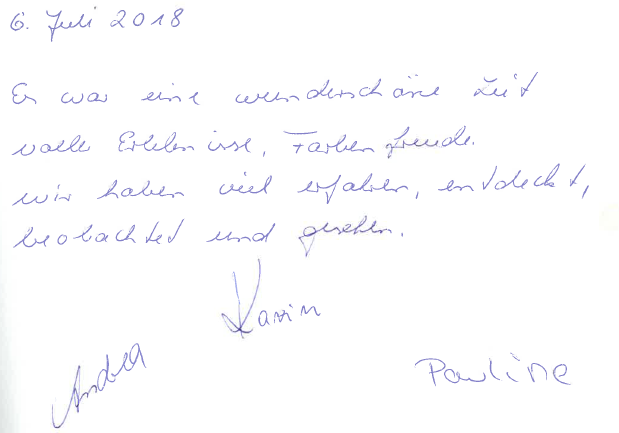 6. Juli 2018
Es war eine wunderschöne Zeit
volle Erlebnisse, Farbenfreude.
wir haben viel erfahren, entdeckt,
beobachtet und gesehen.
Karin
Andrea
Pauline